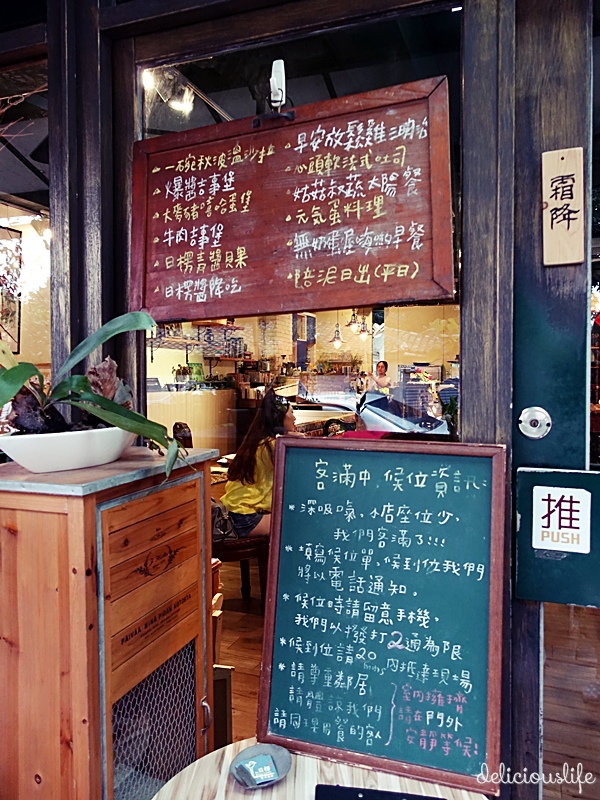 一碗秋波溫沙拉
爆醬吉事堡
大彎豬嘻哈蛋堡
牛肉吉事堡
日楞青醬貝果
日楞醬降吃
早安放鬆雞
心頭軟法式吐司
姑菇叔蔬太陽餐
元気蛋料理
早餐
陪泥日出(平日)
霜降
客滿中,候位資訊:
*深吸吸氣,小店座位少,
我們客滿了!!!
*填寫候位單,候到位我們
將以電話通知。
*候位時請留意手機,
我們以撥打2通為限
*候到位請20mins內抵達現場
*請尊重鄰居
請體諒我們
請同理用餐的客人
室內擁擠
請在門外
安靜等候!
推
PUSH
deliciouslife